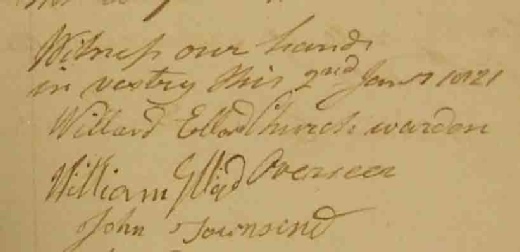 Witness our hands
in vestry this 2nd Jany 1821
Willard Church warden
William Overseer
John Townsend